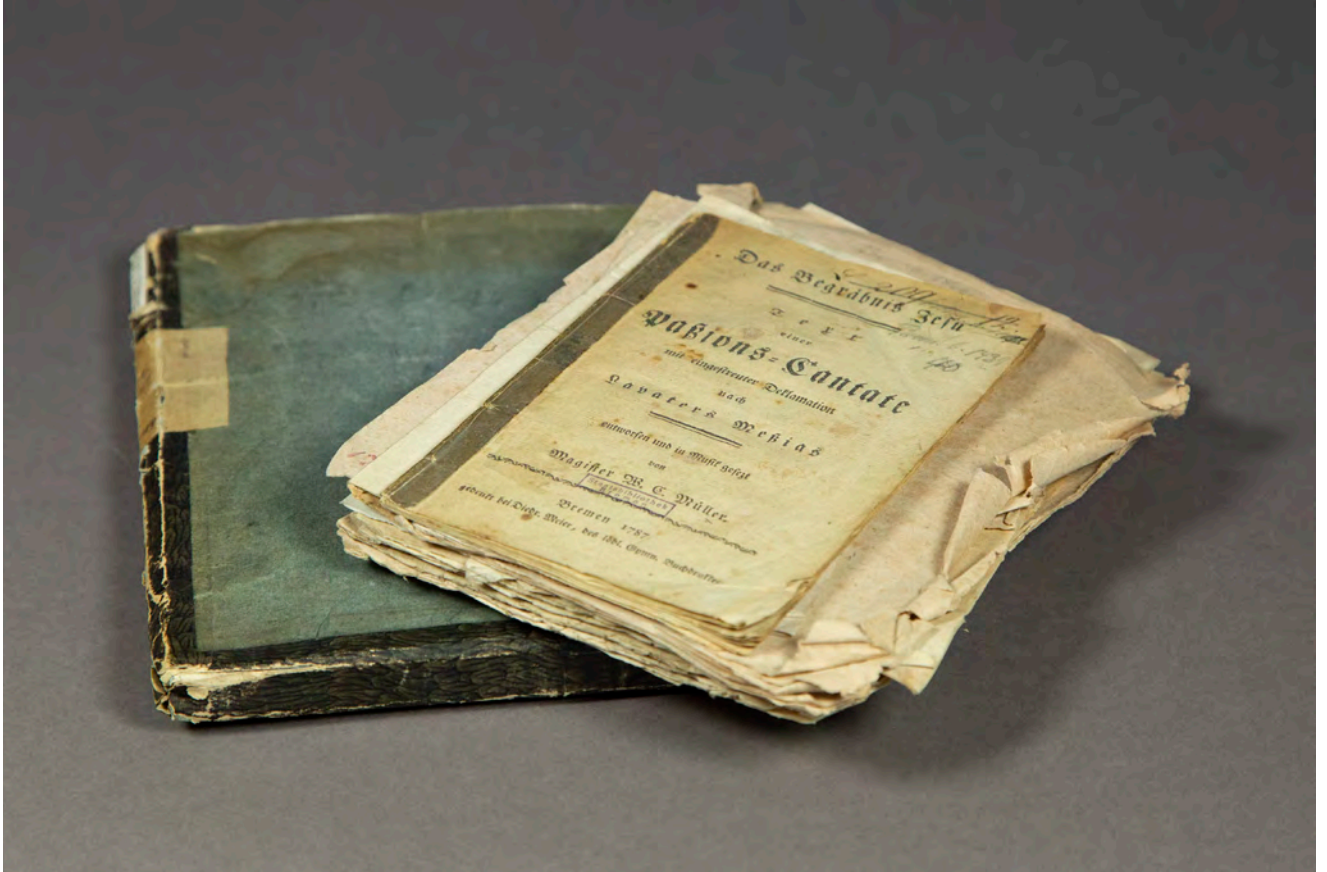 Das Begräbnis Jesu
Text
einer
Paßions-Cantate
mit eingestreuter Deklamation
nach
Lavaters Meßias
entworfen und in Musik gesezt
von
Magister W. C. Müller.
Staatsbibliothek
Bremen 1787
gedrukt bei Diedr. Meier, des löbl. Gymn. Buchdrukker